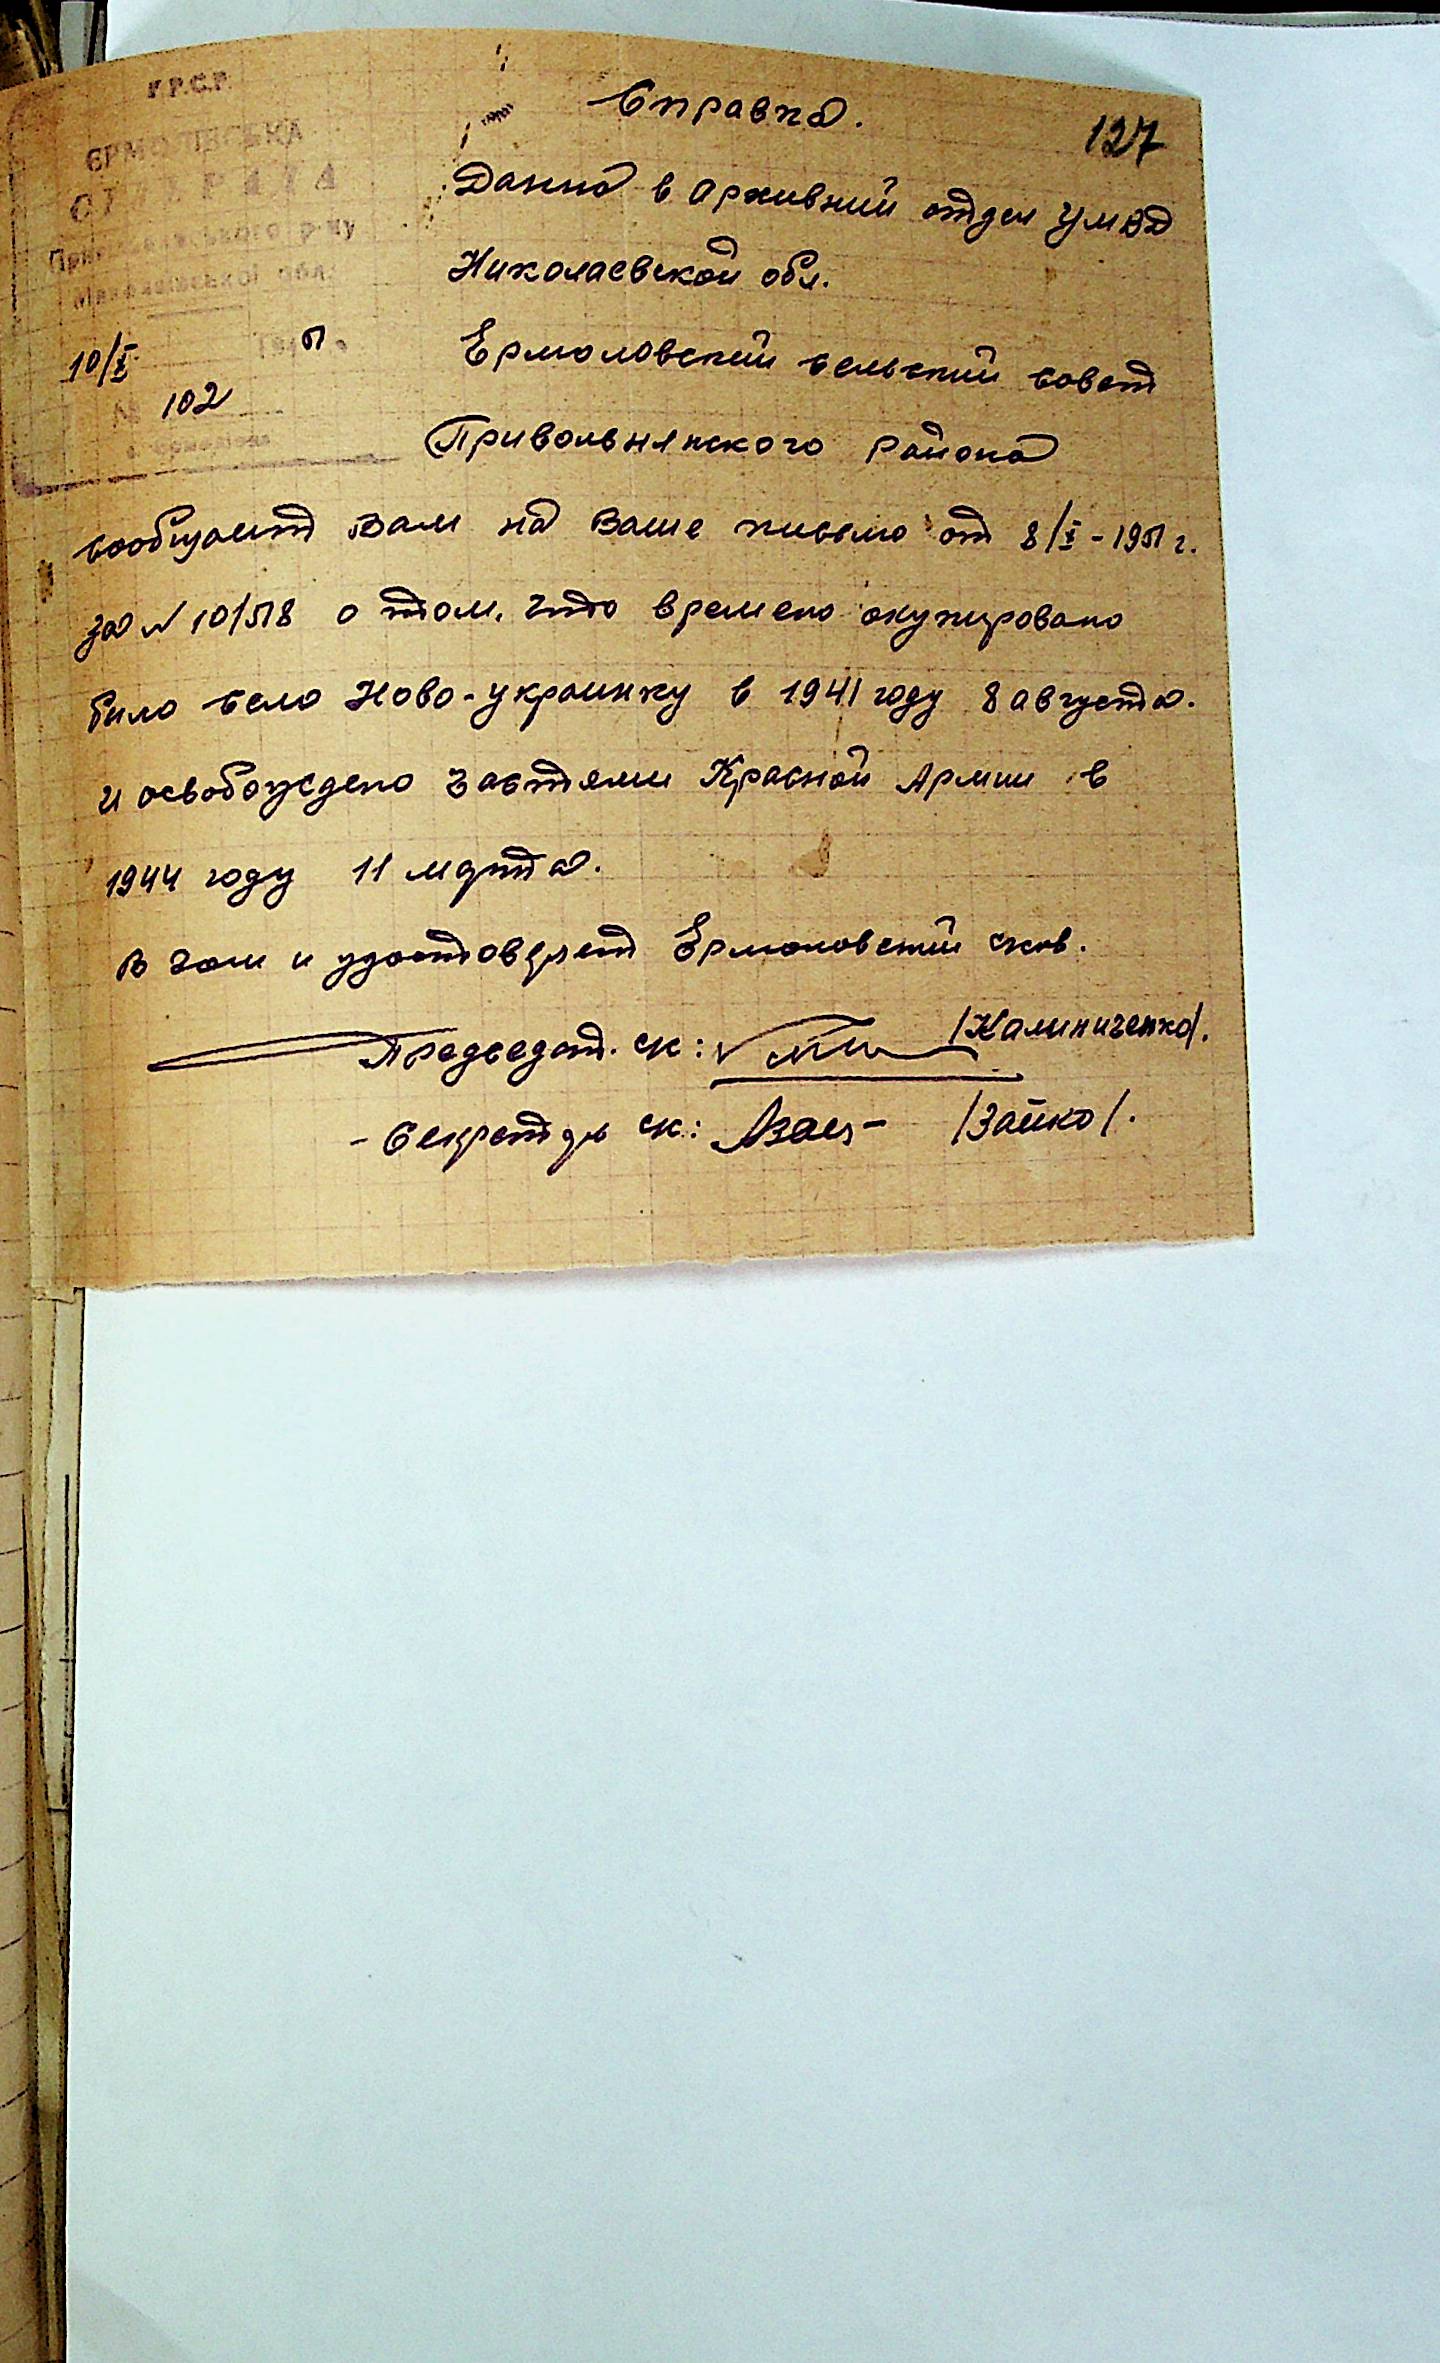 У.Р.С.Р.
ЄРМОЛІВСЬКА
СІЛЬРАДА
Привольнянського р-ну
Миколаївської обл.
10/X 1951 р.
№ 102
с. Єрмолівка
127
Справка.
Данна в Архивний отдел УМВД
Николаевской обл.
Ермоловский сельский совет
Привольнянского района
сообщает Вам на Ваше письмо от 8/X-1951 г.
за № 10/518 о том, что времено окупировано
било село Ново-украинку в 1941 году 8 августа.
и освобождено частями Красной Армии в
1944 году 11 марта.
В чом и удостоверяет Ермоловский
Председат. ск: /Калиниченко/.
- Секретарь ск: /Зайко/.